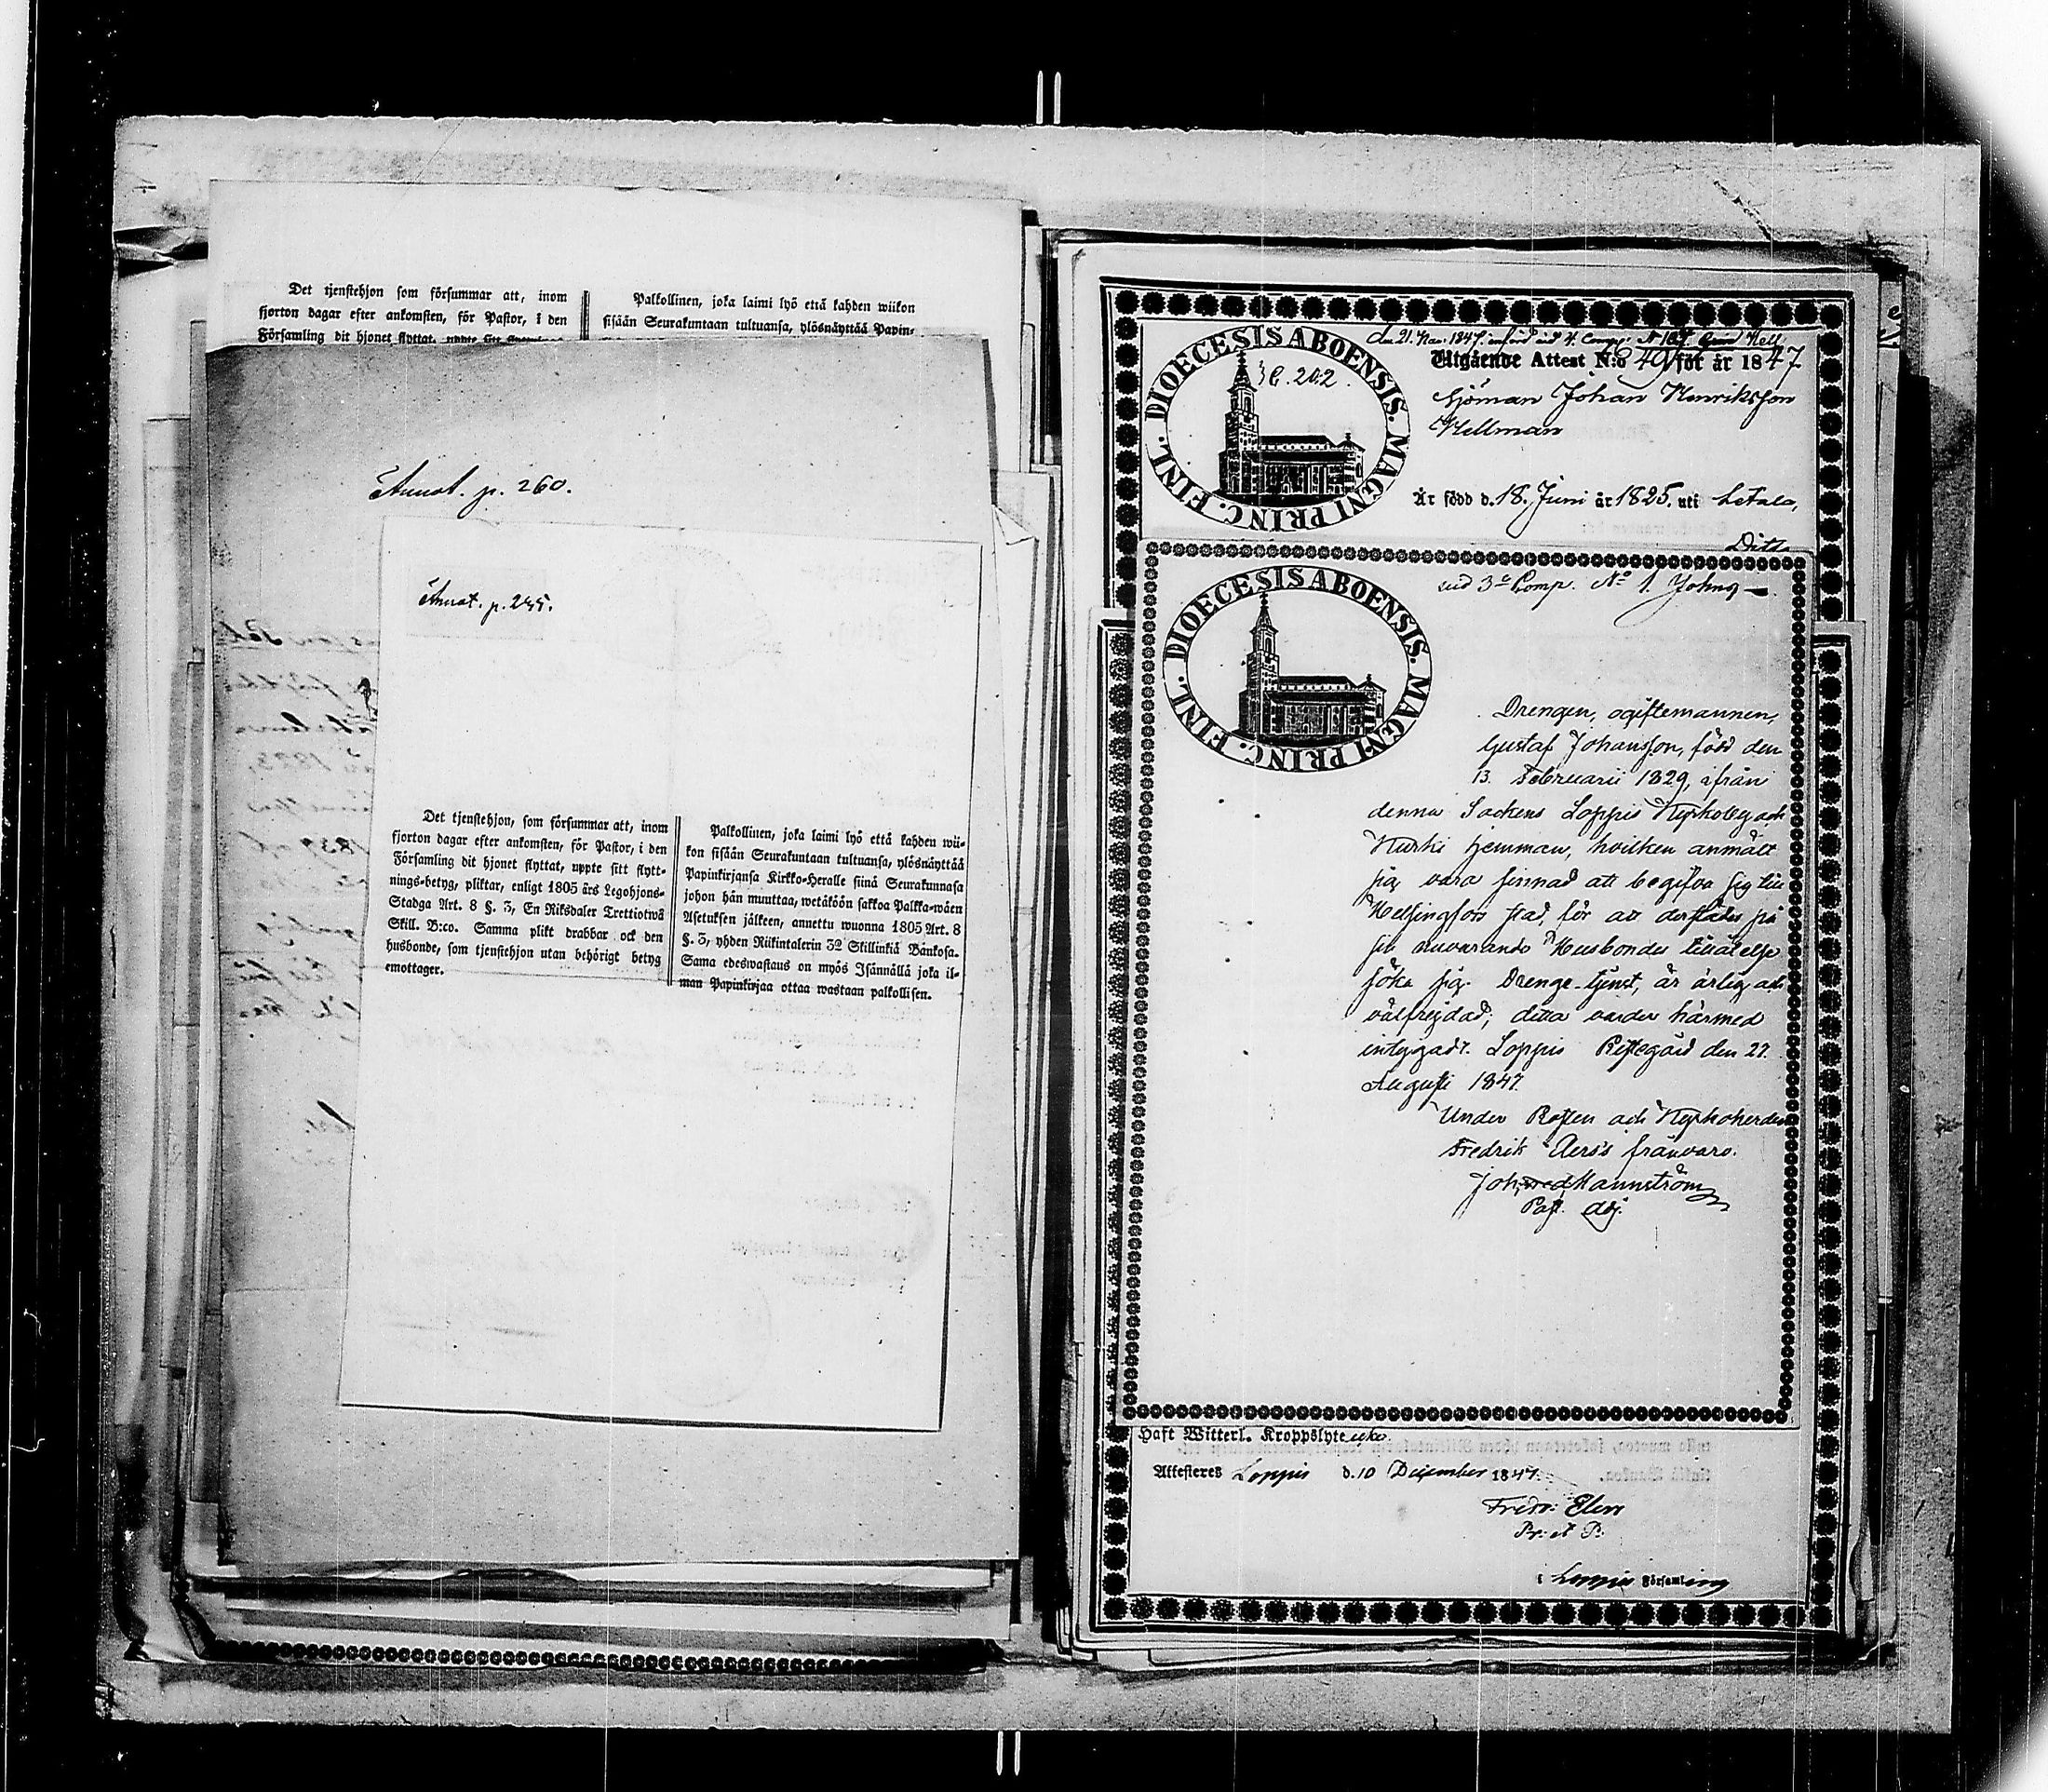 Det tjenstehjon som försummar att, inom
fjorton dagar efter ankomsten, för Pastor, i den
Församling dit hjonet flyttat, uppte sitt
Palkollinen, joka laimi lyö että kahden wiikon
sisään Seurakuntaan tultuansa, ylösnäyttää Papin-
Annot. p. 260.
Annot. p. 245.
Det tjenstehjon, som försummar att, inom
fjorton dagar efter ankomsten, för Pastor, i den
Församling dit hjonet flyttat, uppte sitt flytt-
nings-betyg, pliktar, enligt 1805 års Legohjons-
Stadga Art. 8 §. 3, En Riksdaler Trettiotwå
Skill. B:co. Samma plikt drabbar ock den
husbonde, som tjenstehjon utan behörigt betyg
emottager.
Palkollinen, joka laimi lyö että kahden wii-
kon sisään Seurakuntaan tultuansa, ylösnäyttää
Papinkirjansa Kirkko-Heralle siinä Seurakunnasa
johon hän muuttaa, wetäköön sakkoa Palkka-wäen
Asetuksen jälkeen, annettu wuonna 1805 Art. 8
§. 3, yhden Riikintalerin 32 Skillinkiä Bankosa.
Sama edeswastaus on myös Isännällä joka il-
man Papinkirjaa ottaa wastaan palkollisen.
DIOECESIS ABOENSIS. MAGNI PRINC. FINL.
C. 202.
Utgående Attest N:o 49 för år 1847
Sjöman Johan Henriksson
Hellman
Är född d. 18. Juni år 1825. uti Letala,
Ditt
DIOECESIS ABOENSIS. MAGNI PRINC. FINL.
vid 3e Comp. No 1.
Drengen, ogiftemannen,
Gustaf Johansson, född den
13. Februarii 1829, ifrån
denna Sockens Loppis Kyrkoby och
Kurki hemman, hvilken anmält
sig vara sinnad att begifva sig till
Helsingfors stad, för att derstädes på
sin nuvarande Husbondes tillåtelse
söka sig Drenge-tjenst, är ärlig och
välfrejdad; detta varder härmed
intygadt. Loppis Prestegård den 27.
Augusti 1847.
Under Prosten och Kyrkoherden
Fredrik Elers's frånvaro.
Mannström
Past. adj.
Haft Witterl. Kroppslyte icke.
Attesteres Loppis d. 10 December 1847.
Fredr. Elers
Pr. et P.
i Loppis Församling